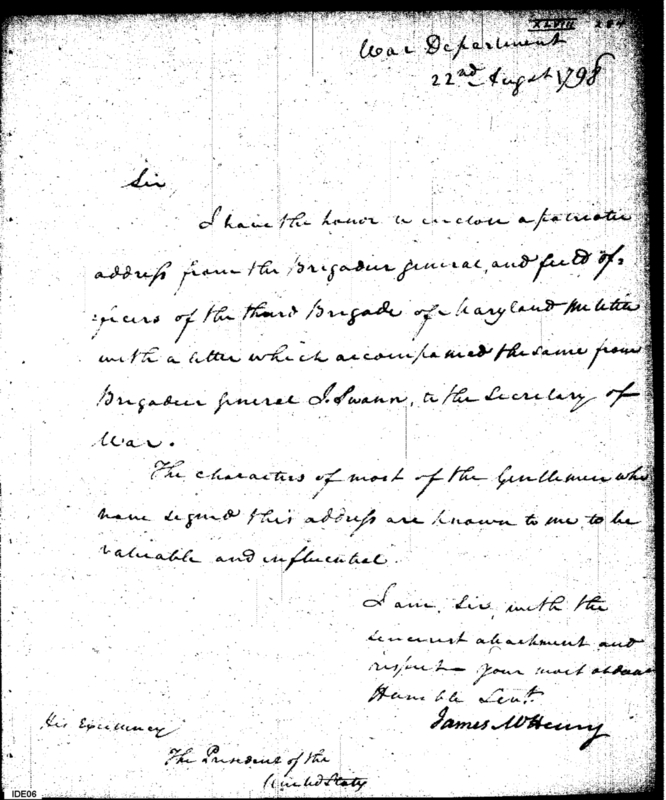 XLVIII 204
War Department
22nd August 1798
Sir,
I have the honor to enclose a patriotic
address from the Brigadier general, and field of-
ficers of the third Brigade of Maryland Militia
with a letter which accompanied the same from
Brigadier general J. Swann, to the Secretary of
War.
The characters of most of the Gentlemen who
have signed this address are known to me, to be
valuable and influential.
I am, Sir, with the
sincerest attachment and
respect your most obedient
Humble Servt.
James McHenry
His Excellency
The President of the
United States
IDE06